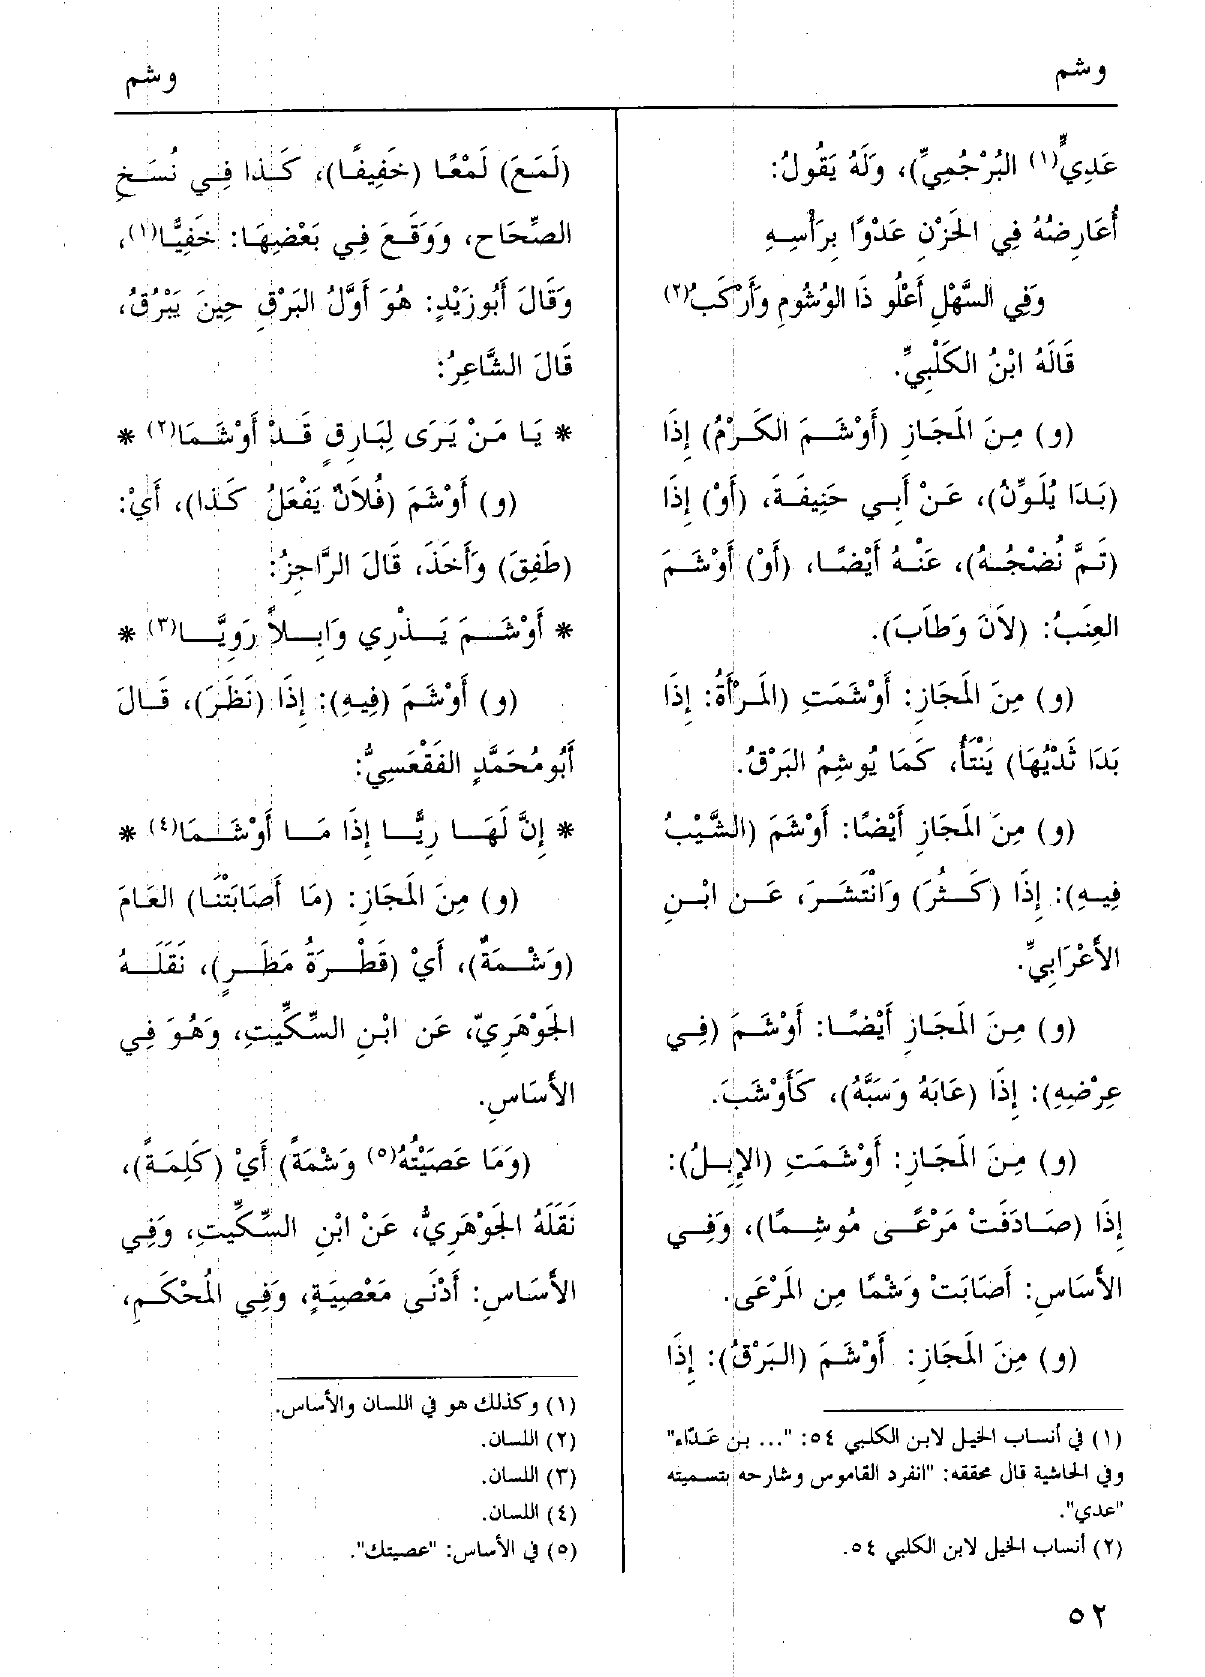 وشم
وشم
عَدِيٍّ(١) البُرْجُمِيِّ)، وَلَهُ يَقُولُ:
أُعَارِضُهُ فِي الحَزْنِ عَدْوًا بِرَأْسِهِ
وَفِي السَّهْلِ أَعْلُو ذَا الوُشُومِ وَأَرْكَبُ(٢)
قَالَهُ ابْنُ الكَلْبِيِّ.
(و) مِنَ المَجَازِ (أَوْشَمَ الكَرْمُ) إِذَا
(بَدَا يُلَوِّنُ)، عَنْ أَبِي حَنِيفَةَ، (أَوْ) إِذَا
(تَمَّ نُضْجُهُ)، عَنْهُ أَيْضًا، (أَوْ) أَوْشَمَ
العِنَبُ: (لاَنَ وَطَابَ).
(و) مِنَ المَجَازِ: أَوْشَمَتِ (المَرْأَةُ: إِذَا
بَدَا ثَدْيُهَا) يَنْتَأُ، كَمَا يُوشِمُ البَرْقُ.
(و) مِنَ المَجَازِ أَيْضًا: أَوْشَمَ (الشَّيْبُ
فِيهِ): إِذَا (كَثُرَ) وَانْتَشَرَ، عَنِ ابْنِ
الأَعْرَابِيِّ.
(و) مِنَ المَجَازِ أَيْضًا: أَوْشَمَ (فِي
عِرْضِهِ): إِذَا (عَابَهُ وَسَبَّهُ)، كَأَوْشَبَ.
(و) مِنَ المَجَازِ: أَوْشَمَتِ (الإِبِلُ):
إِذَا (صَادَفَتْ مَرْعًى مُوشِمًا)، وَفِي
الأَسَاسِ: أَصَابَتْ وَشْمًا مِن المَرْعَى.
(و) مِنَ المَجَازِ: أَوْشَمَ (البَرْقُ): إِذَا
(١) في أنساب الخيل لابن الكلبي ٥٤: "... بن عَدّاء"
وفي الحاشية قال محققه: "انفرد القاموس وشارحه بتسميته
"عدي".
(٢) أنساب الخيل لابن الكلبي ٥٤.
(لَمَعَ) لَمْعًا (خَفِيفًا)، كَذَا فِي نُسَخِ
الصِّحَاح، وَوَقَعَ فِي بَعْضِهَا: خَفِيًّا(١)،
وَقَالَ أَبُوزَيْدٍ: هُوَ أَوَّلُ البَرْقِ حِينَ يَبْرُقُ،
قَالَ الشَّاعِرُ:
* يَا مَنْ يَرَى لِبَارِقٍ قَدْ أَوْشَمَا(٢) *
(و) أَوْشَمَ (فُلاَنٌ يَفْعَلُ كَذَا)، أَيْ:
(طَفِقَ) وَأَخَذَ، قَالَ الرَّاجِزُ:
* أَوْشَمَ يَذْرِي وَابِلاً رَوِيًّا(٣) *
(و) أَوْشَمَ (فِيهِ): إِذَا (نَظَرَ)، قَالَ
أَبُومُحَمَّدٍ الفَقْعَسِيُّ:
* إِنَّ لَهَا رِيًّا إِذَا مَا أَوْشَمَا(٤) *
(و) مِنَ المَجَازِ: (مَا أَصَابَتْنَا) العَامَ
(وَشْمَةٌ)، أَيْ (قَطْرَةُ مَطَرٍ)، نَقَلَهُ
الجَوْهَرِيّ، عَن ابْنِ السِّكِّيتِ، وَهُوَ فِي
الأَسَاسِ.
(وَمَا عَصَيْتُهُ(٥) وَشْمَةً) أَيْ (كَلِمَةً)،
نَقَلَهُ الجَوْهَرِيُّ، عَنْ ابْنِ السِّكِّيتِ، وَفِي
الأَسَاسِ: أَدْنَى مَعْصِيَةٍ، وَفِي المُحْكَمِ،
(١) وكذلك هو في اللسان والأساس.
(٢) اللسان.
(٣) اللسان.
(٤) اللسان.
(٥) في الأساس: "عصيتك".
٥٢